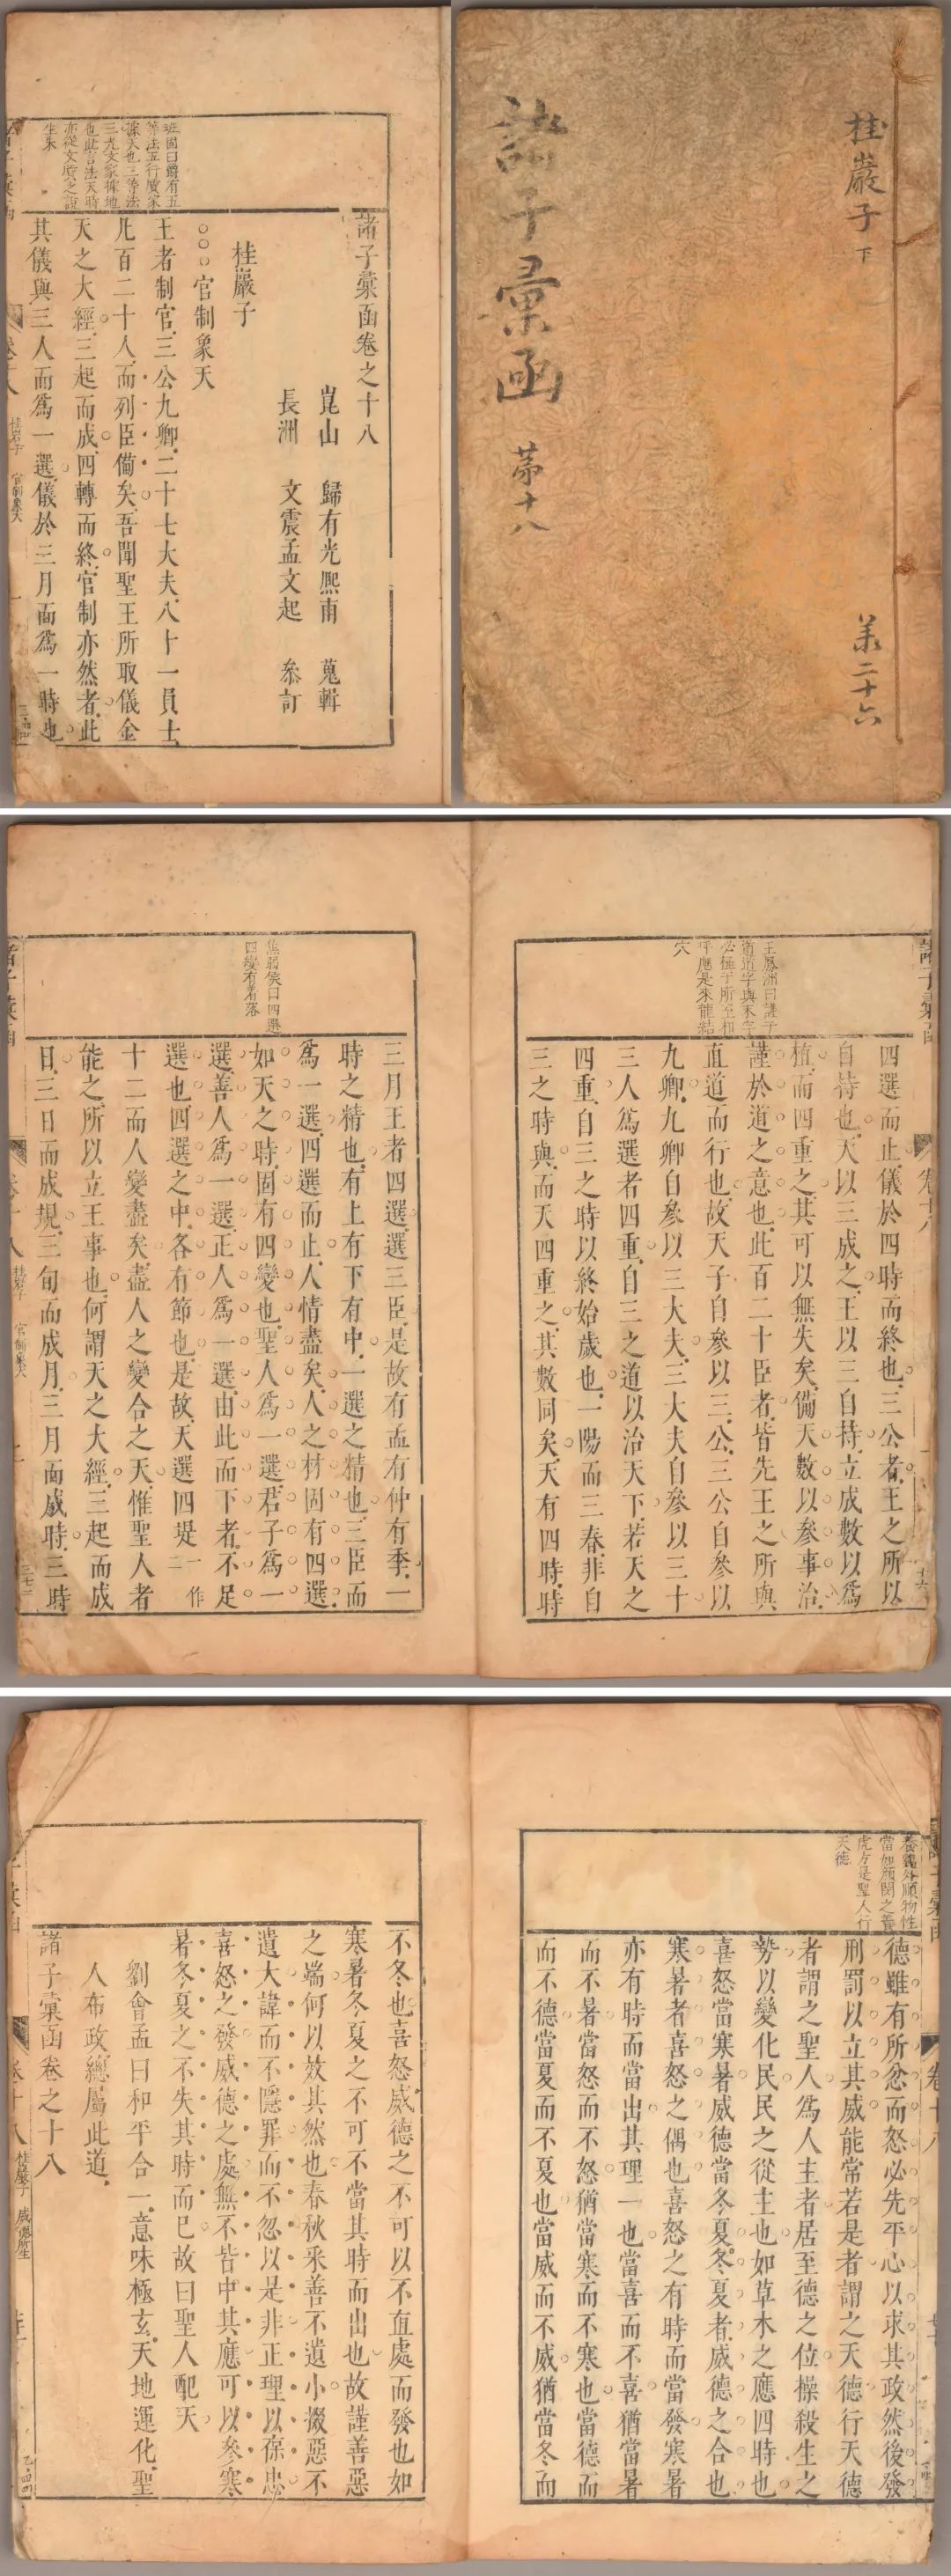 桂巖子 下
第二十六
諸子彙函 第十八
諸子彙函卷之十八
崑山 歸有光熙甫 蒐輯
長洲 文震孟文起 叅訂
桂巖子
○○○官制象天
王者制官三公九卿二十七大夫八十一員士
凡百二十人而列臣備矣吾聞聖王所取儀金
天之大經三起而成四轉而終官制亦然者此
其儀與三人而爲一選儀於三月而爲一時也
班固曰爵有五
等法五行質家
據天也三等法
三光文家據地
也此言法天時
亦從文質之說
生來
四選而止儀於四時而終也三公者王之所以
自持也天以三成之王以三自持立成數以爲
植而四重之其可以無失矣備天數以參事治
謹於道之意也此百二十臣者皆先王之所與
直道而行也故天子自參以三公三公自參以
九卿九卿自參以三大夫三大夫自參以三士
三人爲選者四重自三之道以治天下若天之
四重自三之時以終始歲也一陽而三春非自
三之時與而天四重之其數同矣天有四時時
王鳳洲曰謹于
道道字與末字
必極于所至相
呼應是來龍結
穴
三月王者四選選三臣是故有孟有仲有季一
時之精也有上有下有中一選之精也三臣而
爲一選四選而止人情盡矣人之材固有四選
如天之時固有四變也聖人爲一選君子爲一
選善人爲一選正人爲一選由此而下者不足
選也四選之中各有節也是故天選四堤一作二
十二而人變盡矣盡人之變合之天惟聖人者
能之所以立王事也何謂天之大經三起而成
日三日而成規三旬而成月三月而成時三時
焦弱侯曰四選
四變有着落
德雖有所忿而怒必先平心以求其政然後發
刑罰以立其威能常若是者謂之天德行天德
者謂之聖人爲人主者居至德之位操殺生之
勢以變化民民之從主也如草木之應四時也
喜怒當寒暑威德當冬夏冬夏者威德之合也
寒暑者喜怒之偶也喜怒之有時而當發寒暑
亦有時而當出其理一也當喜而不喜猶當暑
而不暑當怒而不怒猶當寒而不寒也當德而
而不德當夏而不夏也當威而不威猶當冬而
外順物性
當如顏閔之養
虎方是聖人行
天德
不冬也喜怒威德之不可以不直處而發也如
寒暑冬夏之不可不當其時而出也故謹善惡
之端何以效其然也春秋采善不遺小掇惡不
遺大諱而不隱罪而不忽以是非正理以褒忠
喜怒之發威德之處無不皆中其應可以參寒
暑冬夏之不失其時而已故曰聖人配天
劉會孟曰和平合一意味極玄天地運化聖
人布政總屬此道
諸子彙函卷之十八